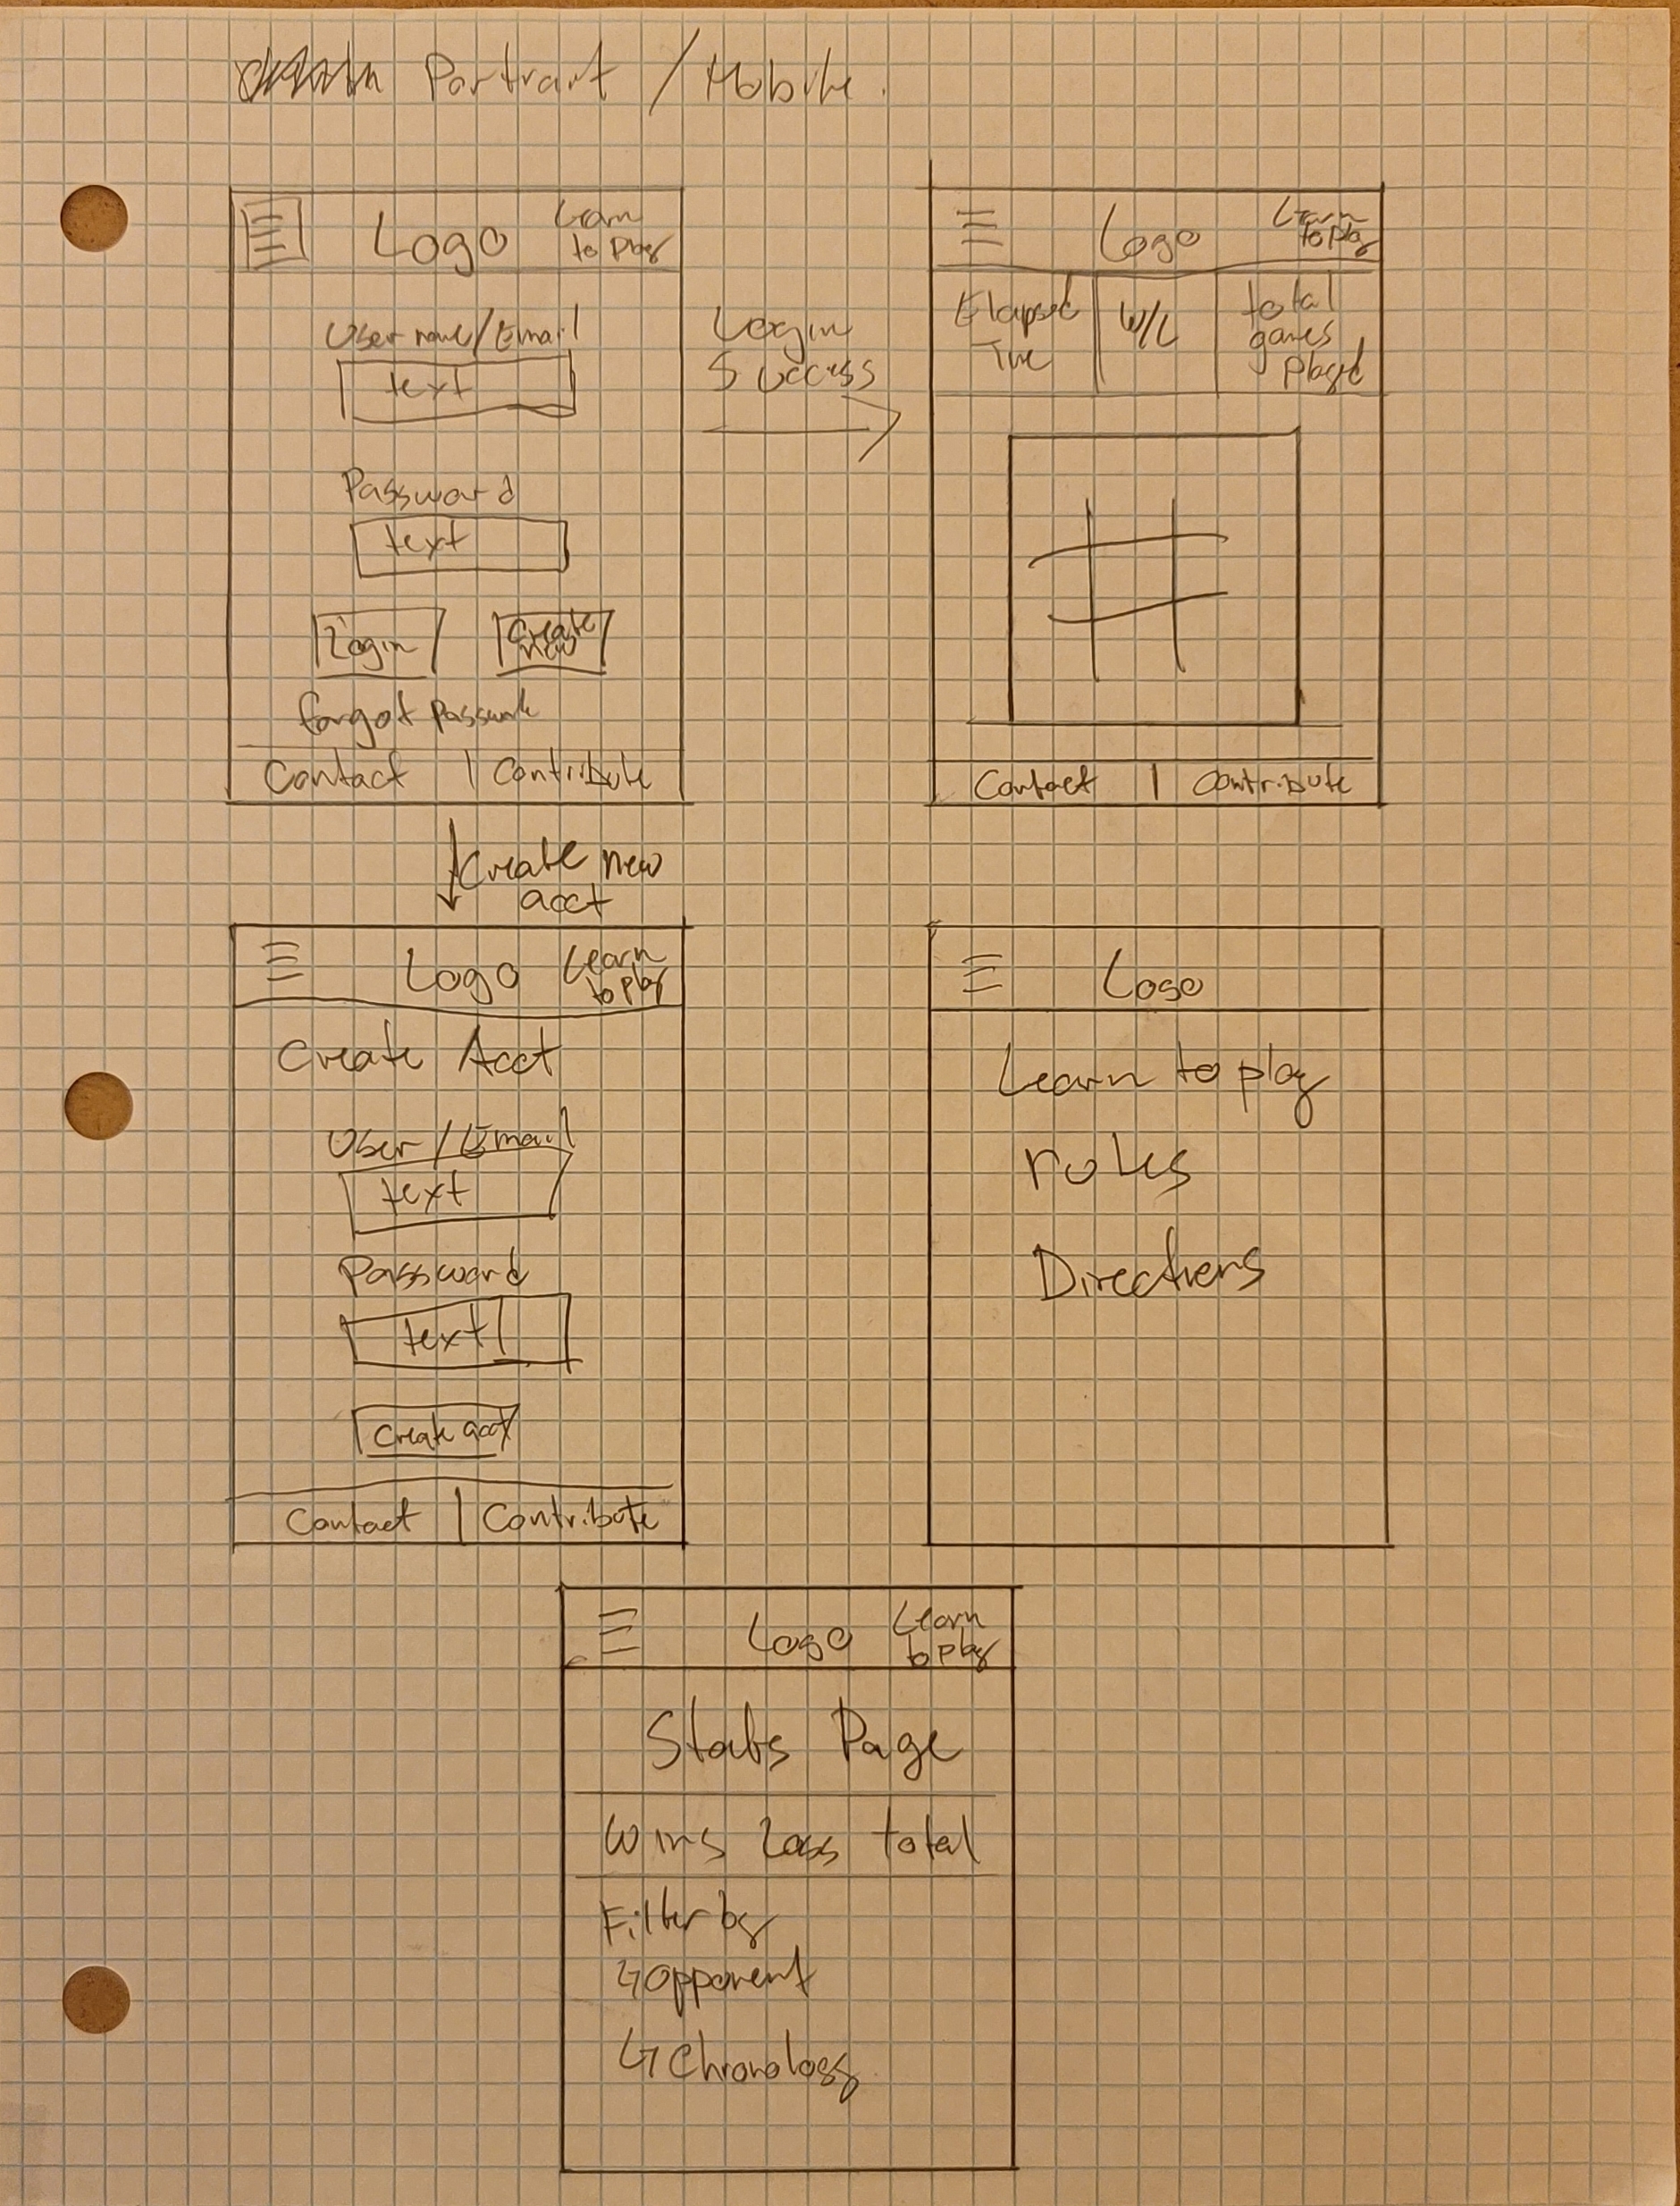 Portrait / Mobile.
Logo
Learn
to play
User name/Email
text
Password
text
Login
Create
new
forgot Passwork
Contact | Contribute
Login
Success
Logo
Learn
to play
Elapsed
Time
W/L
total
games
Played
Contact | Contribute
Create new
acct
Logo
Learn
to play
Create Acct
User/Email
text
Password
text
Create acct
Contact | Contribute
Logo
Learn to play
rules
Directions
Logo
Learn
to play
Stats Page
Wins Loss total
Filter by
↳ Opponent
↳ Chronology